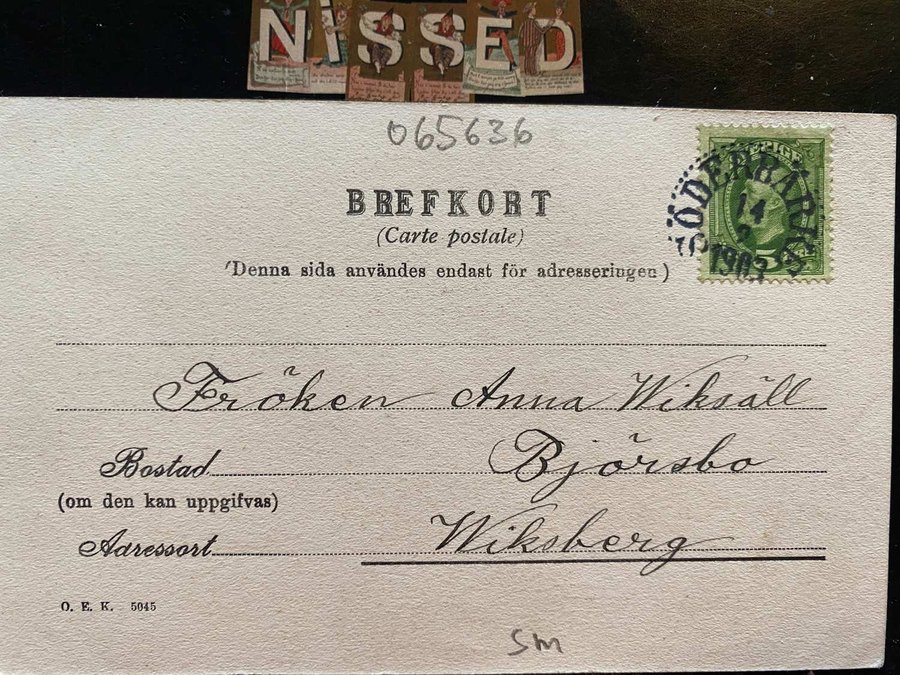 NiSSED
065636
BREFKORT
(Carte postale)
(Denna sida användes endast för adresseringen)
SVERIGE
SÖDERBÄRKE
14
2
1903
5
Fröken Anna Wiksäll
Bostad Björsbo
(om den kan uppgifvas)
Adressort Wiksberg
O. E. K. 5045
Sm